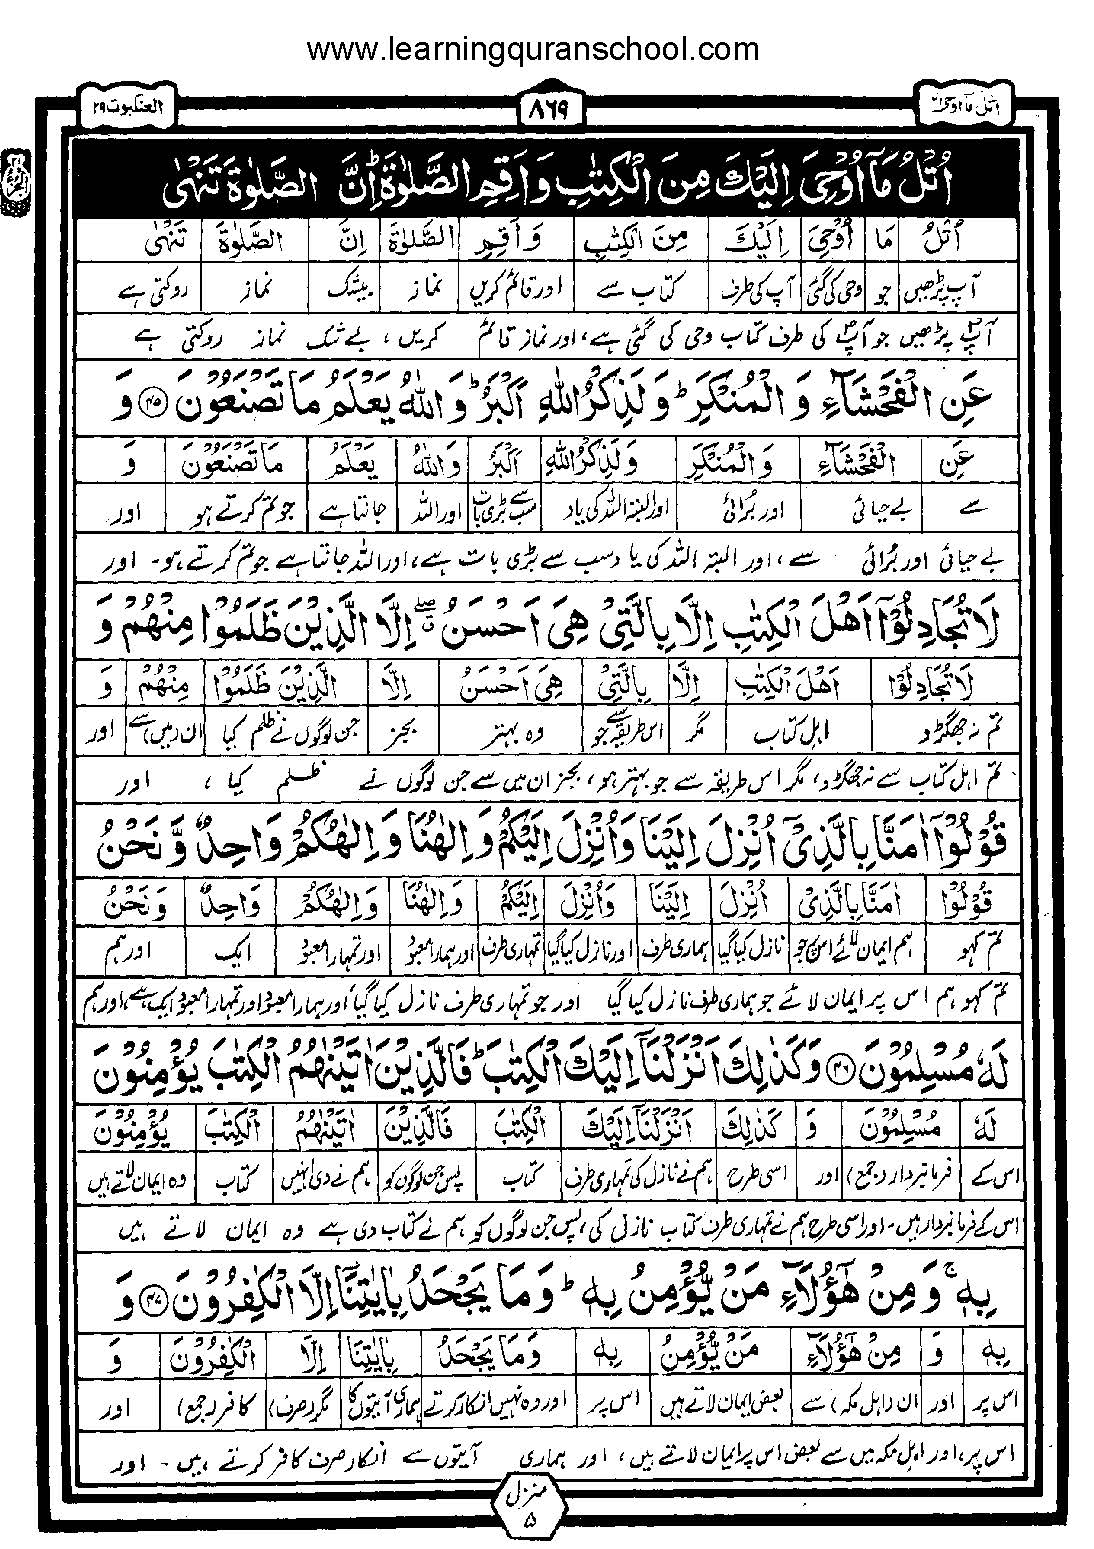 www.learningquranschool.com
اتل ما اوحی ۲۱
۸۶۹
العنکبوت ۲۹
اُتْلُ مَآ اُوْحِیَ اِلَیْكَ مِنَ الْكِتٰبِ وَ اَقِمِ الصَّلٰوةَ ؕ اِنَّ الصَّلٰوةَ تَنْهٰی
اُتْلُ مَا اُوْحِیَ اِلَیْكَ مِنَ الْكِتٰبِ وَ اَقِمِ الصَّلٰوةَ اِنَّ الصَّلٰوةَ تَنْهٰی
آپ پڑھیں جو وحی کی گئی آپ کی طرف کتاب سے اور قائم کریں نماز بیشک نماز روکتی ہے
آپ پڑھیں جو آپ کی طرف کتاب وحی کی گئی ہے، اور نماز قائم کریں، بے شک نماز روکتی ہے
عَنِ الْفَحْشَآءِ وَ الْمُنْكَرِ ؕ وَ لَذِكْرُ اللّٰهِ اَكْبَرُ ؕ وَ اللّٰهُ یَعْلَمُ مَا تَصْنَعُوْنَ ۴۵ وَ
عَنِ الْفَحْشَآءِ وَ الْمُنْكَرِ وَ لَذِكْرُ اللّٰهِ اَكْبَرُ وَ اللّٰهُ یَعْلَمُ مَا تَصْنَعُوْنَ وَ
سے بے حیائی اور بُرائی اور البتہ اللہ کی یاد سب سے بڑی بات اور اللہ جانتا ہے جو تم کرتے ہو اور
بے حیائی اور بُرائی سے، اور البتہ اللہ کی یاد سب سے بڑی بات ہے، اور اللہ جانتا ہے جو تم کرتے ہو۔ اور
لَا تُجَادِلُوْۤا اَهْلَ الْكِتٰبِ اِلَّا بِالَّتِیْ هِیَ اَحْسَنُ ۖ اِلَّا الَّذِیْنَ ظَلَمُوْا مِنْهُمْ وَ
لَا تُجَادِلُوْۤا اَهْلَ الْكِتٰبِ اِلَّا بِالَّتِیْ هِیَ اَحْسَنُ اِلَّا الَّذِیْنَ ظَلَمُوْا مِنْهُمْ وَ
تم نہ جھگڑو اہل کتاب مگر اس طریقہ سے جو وہ بہتر بجز جن لوگوں نے ظلم کیا ان (میں) سے اور
تم اہل کتاب سے نہ جھگڑو، مگر اس طریقہ سے جو بہتر ہو، بجز ان میں سے جن لوگوں نے ظلم کیا، اور
قُوْلُوْۤا اٰمَنَّا بِالَّذِیْۤ اُنْزِلَ اِلَیْنَا وَ اُنْزِلَ اِلَیْكُمْ وَ اِلٰهُنَا وَ اِلٰهُكُمْ وَاحِدٌ وَّ نَحْنُ
قُوْلُوْۤا اٰمَنَّا بِالَّذِیْ اُنْزِلَ اِلَیْنَا وَ اُنْزِلَ اِلَیْكُمْ وَ اِلٰهُنَا وَ اِلٰهُكُمْ وَاحِدٌ وَ نَحْنُ
تم کہو ہم ایمان لائے اس پر جو نازل کیا گیا ہماری طرف اور نازل کیا گیا تمہاری طرف اور ہمارا معبود اور تمہارا معبود ایک اور ہم
تم کہو ہم اس پر ایمان لائے جو ہماری طرف نازل کیا گیا اور جو تمہاری طرف نازل کیا گیا اور ہمارا معبود اور تمہارا معبود ایک ہے، اور ہم
لَهٗ مُسْلِمُوْنَ ۴۶ وَ كَذٰلِكَ اَنْزَلْنَاۤ اِلَیْكَ الْكِتٰبَ ؕ فَالَّذِیْنَ اٰتَیْنٰهُمُ الْكِتٰبَ یُؤْمِنُوْنَ
لَهٗ مُسْلِمُوْنَ وَ كَذٰلِكَ اَنْزَلْنَاۤ اِلَیْكَ الْكِتٰبَ فَالَّذِیْنَ اٰتَیْنٰهُمُ الْكِتٰبَ یُؤْمِنُوْنَ
اس کے فرمانبردار (جمع) اور اسی طرح ہم نے نازل کی تمہاری طرف کتاب پس جن لوگوں کو ہم نے دی انہیں کتاب وہ ایمان لاتے ہیں
اس کے فرمانبردار ہیں۔ اور اسی طرح ہم نے تمہاری طرف کتاب نازل کی، پس جن لوگوں کو ہم نے کتاب دی ہے وہ ایمان لاتے ہیں
بِهٖ ۚ وَ مِنْ هٰۤؤُلَآءِ مَنْ یُّؤْمِنُ بِهٖ ؕ وَ مَا یَجْحَدُ بِاٰیٰتِنَاۤ اِلَّا الْكٰفِرُوْنَ ۴۷ وَ
بِهٖ وَ مِنْ هٰۤؤُلَآءِ مَنْ یُّؤْمِنُ بِهٖ وَ مَا یَجْحَدُ بِاٰیٰتِنَا اِلَّا الْكٰفِرُوْنَ وَ
اس پر اور ان (اہل مکہ) سے بعض ایمان لاتے ہیں اس پر اور وہ نہیں انکار کرتے ہماری آیتوں کا مگر (صرف) کافر (جمع) اور
اس پر، اور اہل مکہ میں سے بعض اس پر ایمان لاتے ہیں، اور ہماری آیتوں سے انکار صرف کافر کرتے ہیں۔ اور
منزل
۵